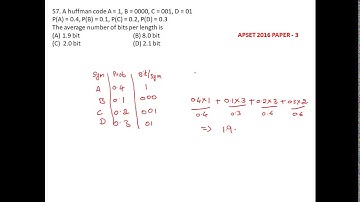 57. A huffman code A = 1, B = 0000, C = 001, D = 01
P(A) = 0.4, P(B) = 0.1, P(C) = 0.2, P(D) = 0.3
The average number of bits per length is
(A) 1.9 bit (B) 8.0 bit
(C) 2.0 bit (D) 2.1 bit
APSET 2016 PAPER - 3
Sym Prob Bit/sym
A 0.4 1
B 0.1 000
C 0.2 001
D 0.3 01
0.4x1 + 0.1x3 + 0.2x3 + 0.3x2
0.4 0.3 0.6 0.6
⇒ 19.